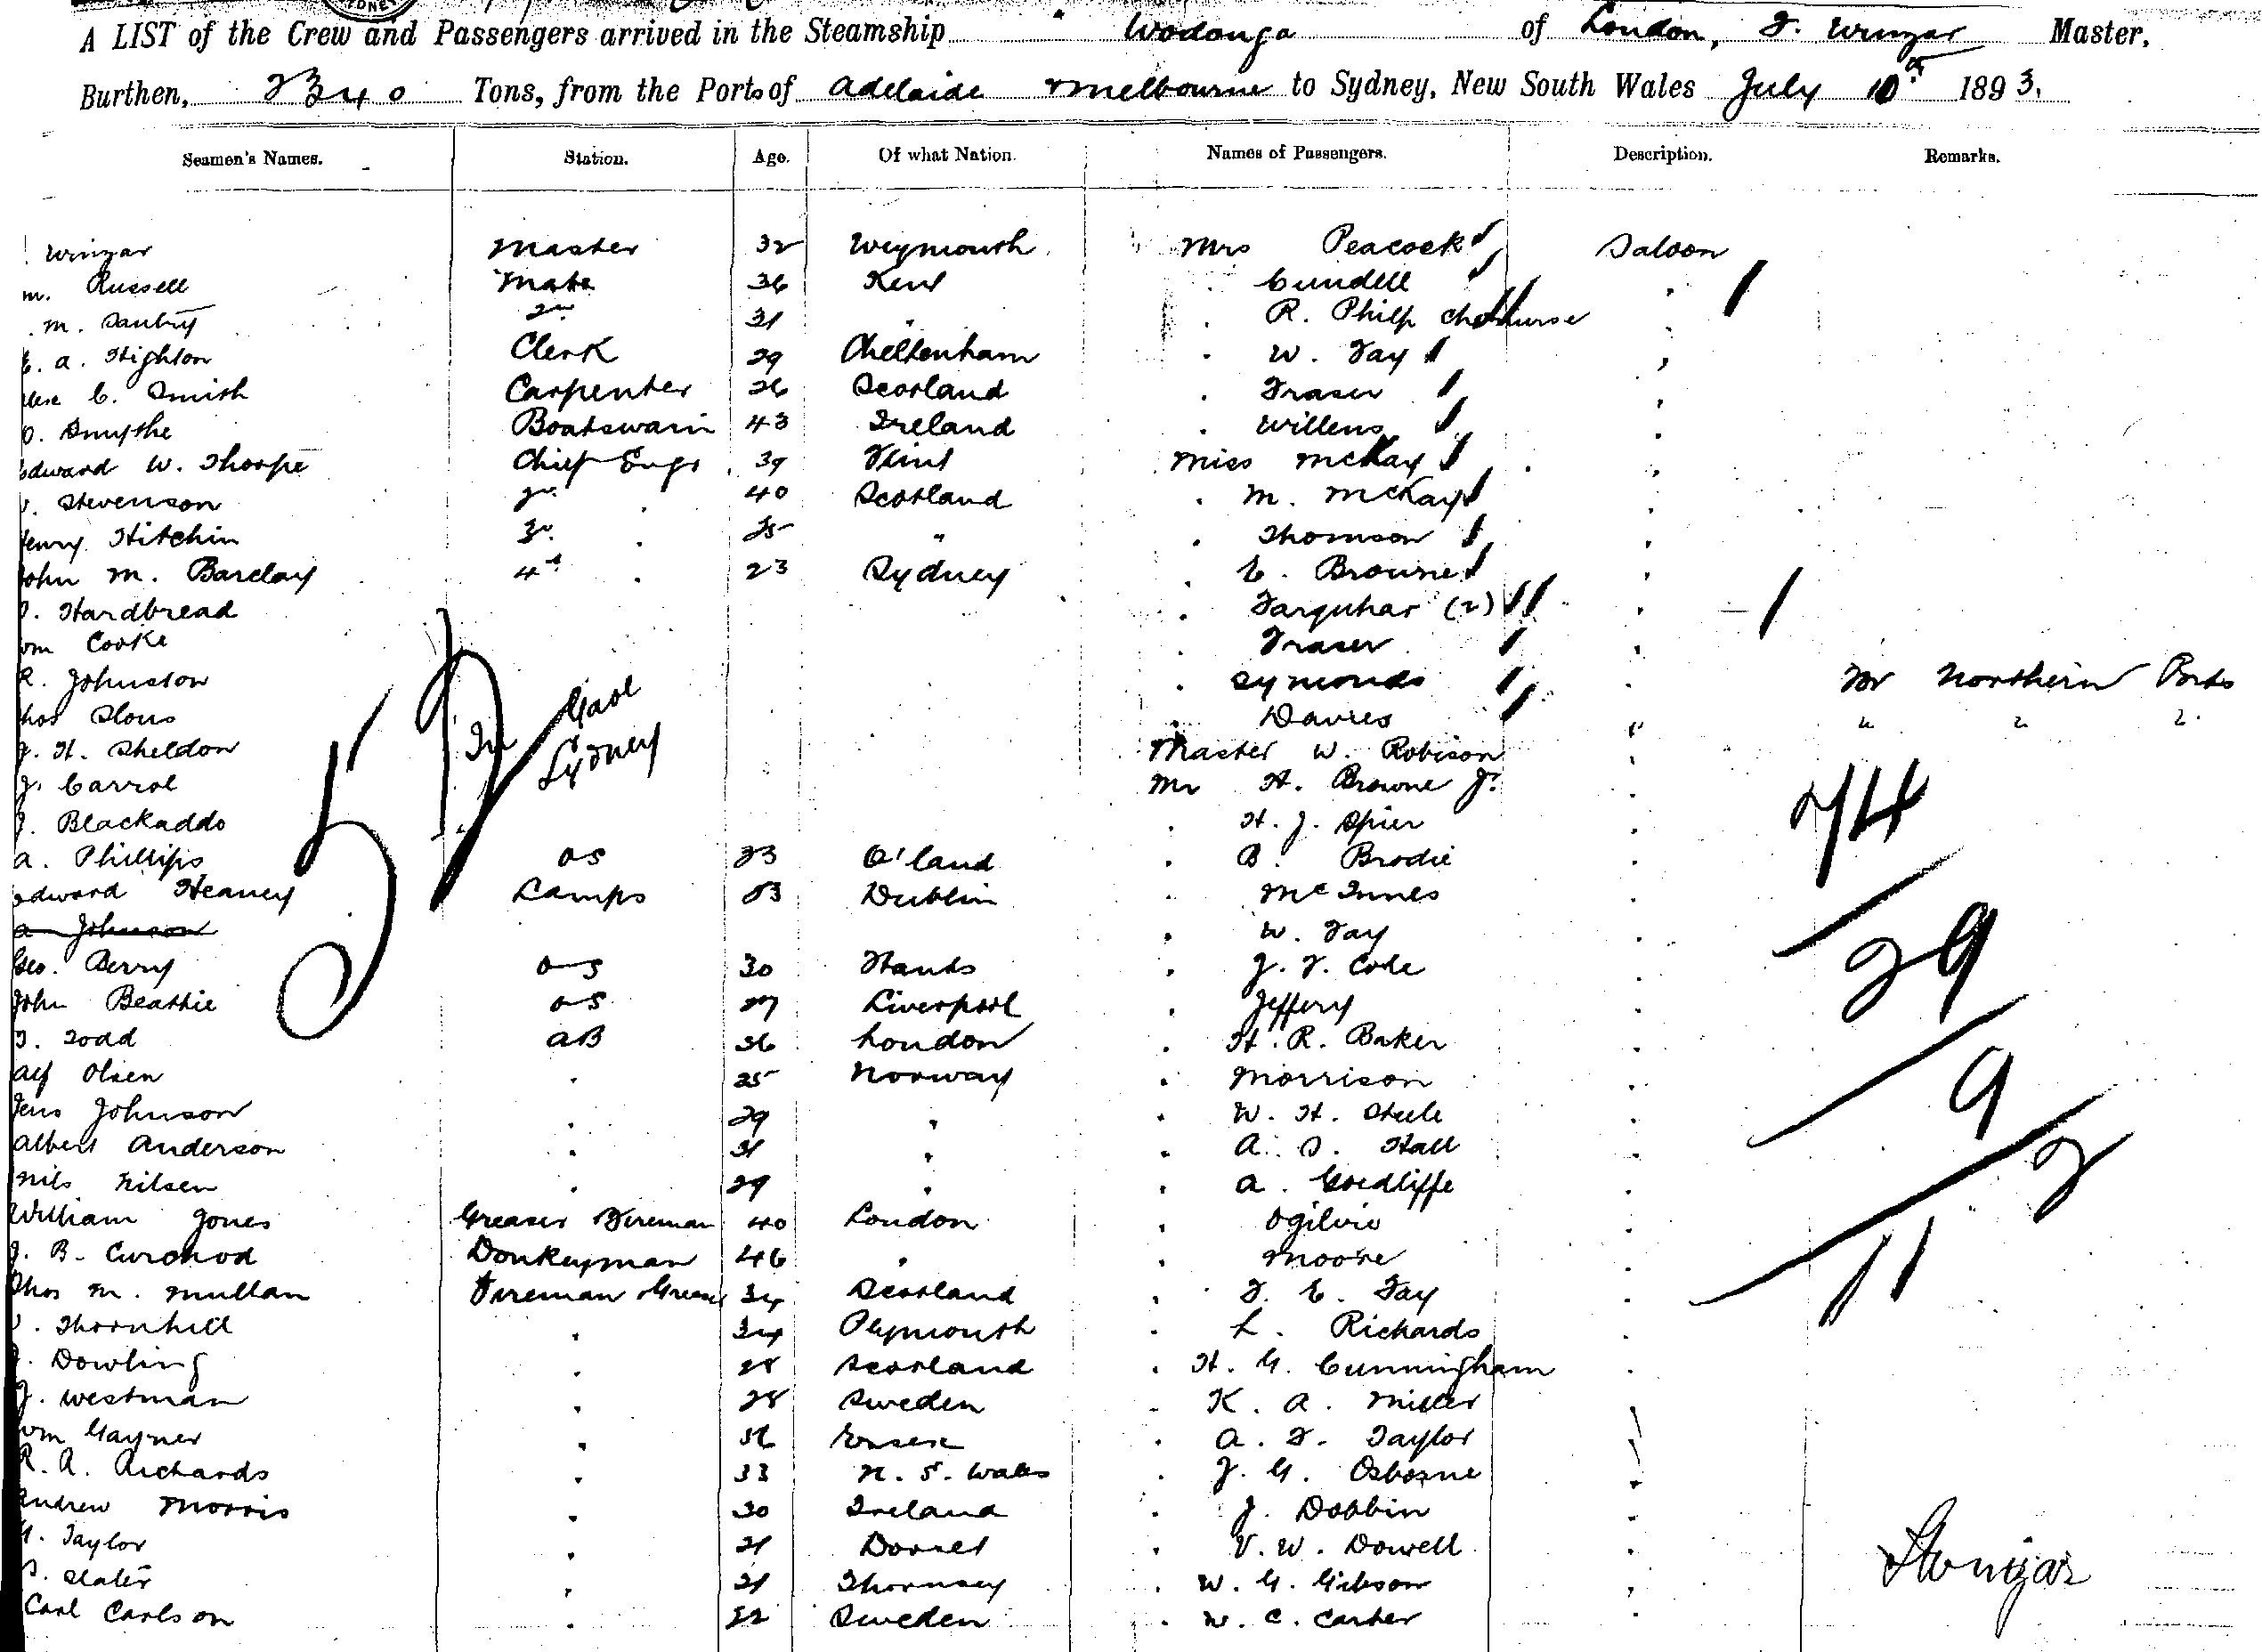 A LIST of the Crew and Passengers arrived in the Steamship " Wodonga of London, F. Winzar Master,
Burthen, 2340 Tons, from the Ports of Adelaide & Melbourne to Sydney, New South Wales July 10th 1893.
Seamen's Names. Station. Age. Of what Nation. Names of Passengers. Description. Remarks.
Winzar Master 32 Weymouth Mrs Peacock Saloon
m. Russell Mate 36 Kent " Cundell "
M. 2nd 31 " " R. Philp nurse "
E. A. Highton Clerk 29 Cheltenham " W. Fay "
C. Smith Carpenter 26 Scotland " Fraser "
O. Smythe Boatswain 43 Ireland " Willens "
Edward W. Thorpe Chief Engr 39 Flint Miss McKay "
Stevenson 2nd " 40 Scotland " M. McKay "
Henry Hitchin 3rd " 25 " " Thomson "
John M. Barclay 4th " 23 Sydney " E. Browne "
Hardbread " Farquhar (2) "
Wm Cooke " Fraser "
R. Johnston " Symonds " For Northern Ports
Thos Slous " Davies " " " "
J. H. Sheldon In Gaol Sydney Master W. Robison "
J. Carrol Mr H. Browne Jr. "
J. Blackaddo " H. J. Spier " 74
A. Phillips OS 23 A'land " B. Brodie "
Edward Heaney Lamps 53 Dublin " McInnes "
A Johnson " W. Fay " 29
Geo. Berry OS 30 Hants " J. F. Cole "
John Beattie OS 27 Liverpool " Jeffery "
T. Todd AB 36 London " H. R. Baker "
Alf Olsen " 25 Norway " Morrison " 9
Jens Johnson " 29 " " W. H. Steele "
Albert Anderson " 31 " " A. S. Hall " 2
Nils Nilsen " 29 " " A. Goedliffe "
William Jones Greaser Fireman 40 London " Ogilvie "
J. B. Curchod Donkeyman 46 " " Moore " 11
Thos M. Mullan Fireman & Greaser 34 Scotland " F. E. Fay "
Thornhill " 34 Plymouth " L. Richards "
J. Dowling " 28 Scotland " H. G. Cunningham "
J. Westman " 28 Sweden " K. A. Miller "
Wm Gayner " 36 Essex " A. F. Taylor "
R. A. Richards " 33 N. S. Wales " J. G. Osborne "
Andrew Morris " 30 Ireland " J. Dobbin "
Taylor " 21 Dorset " V. W. Dowell "
S. Slater " 21 Thornsey " W. G. Gibson "
Carl Carlson " 22 Sweden " W. C. Carter "